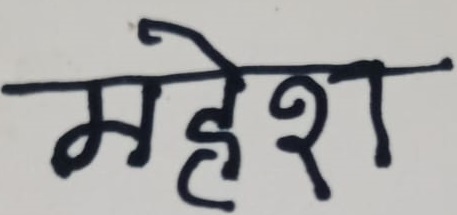 महेश